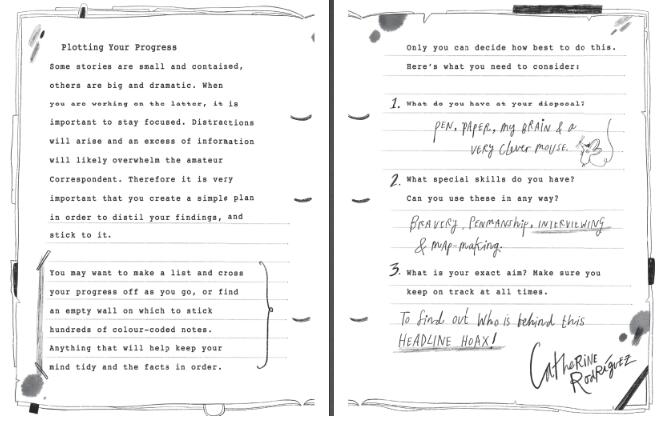 Plotting Your Progress
Some stories are small and contaised,
others are big and dramatic. When
you are working on the latter, it is
important to stay focused. Distractions
will arise and an excess of information
will likely overwhelm the amateur
Correspondent. Therefore it is very
important that you create a simple plan
in order to distil your findings, and
stick to it.
You may want to make a list and cross
your progress off as you go, or find
an empty wall on which to stick
hundreds of colour-coded notes.
Anything that will help keep your
mind tidy and the facts in order.
Only you can decide how best to do this.
Here's what you need to consider:
1. What do you have at your disposal?
PEN, PAPER, my BRAIN & a
VERY Clever MOUSE.
2. What special skills do you have?
Can you use these in any way?
BRAVERY, PENMANShip, INTERVIEWING
& MAP-making.
3. What is your exact aim? Make sure you
keep on track at all times.
To find out Who is behind this
HEADLINE HOAX!
CatheRINE
RODRÍGUEZ